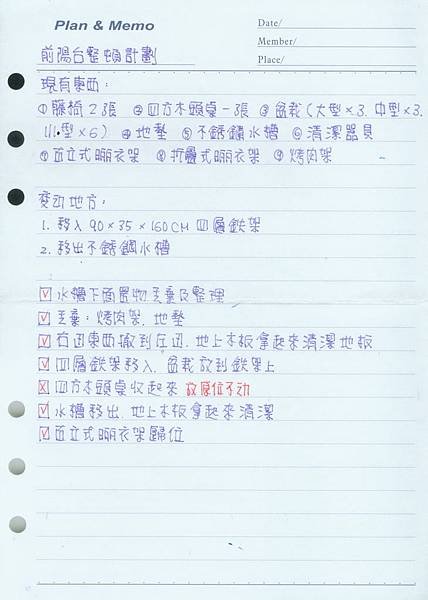 Plan & Memo
Date/
Member/
Place/
前陽台整頓計劃
現有東西：
①藤椅2張 ②四方木頭桌一張 ③盆栽(大型×3.中型×3.
小型×6) ④地墊 ⑤不銹鏽水槽 ⑥清潔器具
⑦直立式曬衣架 ⑧折疊式曬衣架 ⑨烤肉架
變动地方：
1. 移入90×35×160CM四層鉄架
2. 移出不銹鋼水槽
水槽下面置物丟棄及整理
丟棄：烤肉架.地墊
右边東西搬到左边.地上木板拿起來清潔地板
四層鉄架移入.盆栽放到鉄架上
四方木頭桌收起來 放原位不动
水槽移出.地上木板拿起來清潔
直立式曬衣架歸位